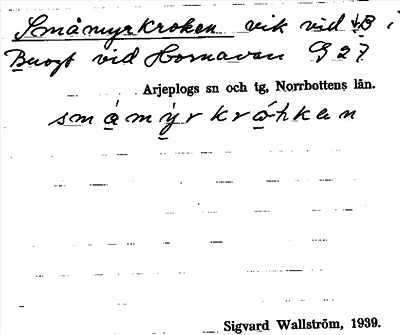 Småmyrkroken vik vid
vid Hornavan G 27
Arjeplogs sn och tg, Norrbottens län.
småmyrkråkan
Sigvard Wallström, 1939.